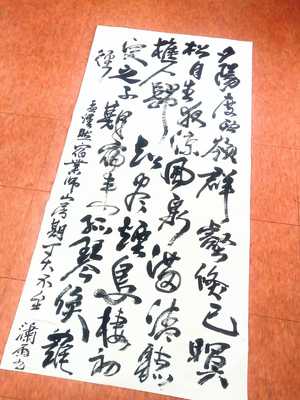 夕陽度西嶺群壑倏已暝
松月生夜涼風泉滿清聽
樵人歸欲盡煙鳥棲初
定之子期宿来孤琴候蘿
徑
孟浩然宿業師山房期丁大不至 瀟雨书